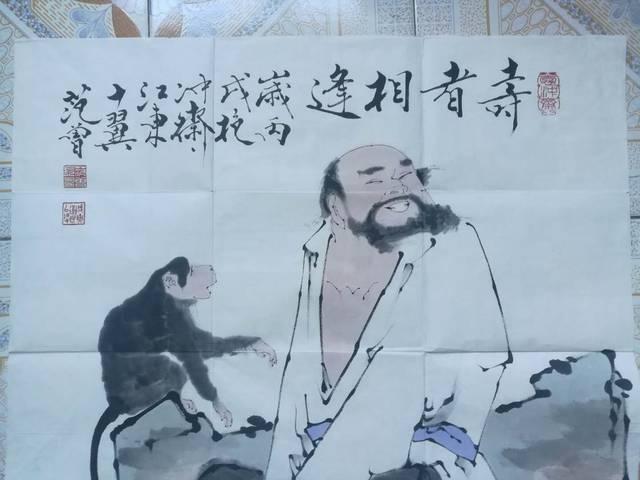 壽者相逢
歲丙
戌抱
冲齋
江東
十翼
范曾